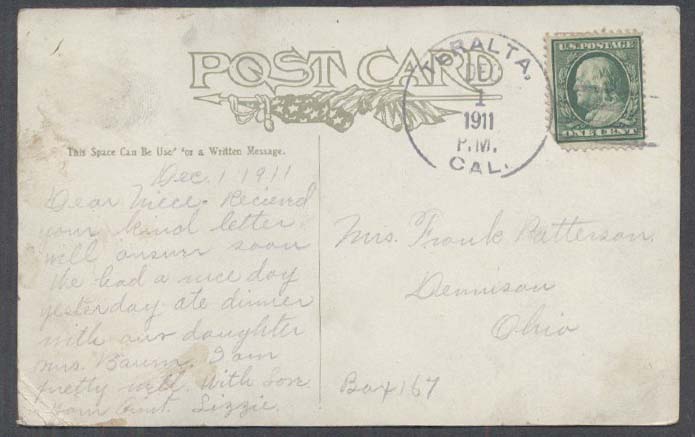 POST CARD
TERALTA,
DEC
1
1911
P.M.
CAL.
U.S. POSTAGE
ONE CENT
This Space Can Be Used for a Written Message.
Dec. 1 1911
Dear Niece. Recievd
your kind letter
will answr soon
We had a nice day
yesterday ate dinner
with our daughter
Mrs. Baum. I am
pretty well. With Love
from Aunt Lizzie
Mrs. Frank Patterson.
Dennison
Ohio
Box 167